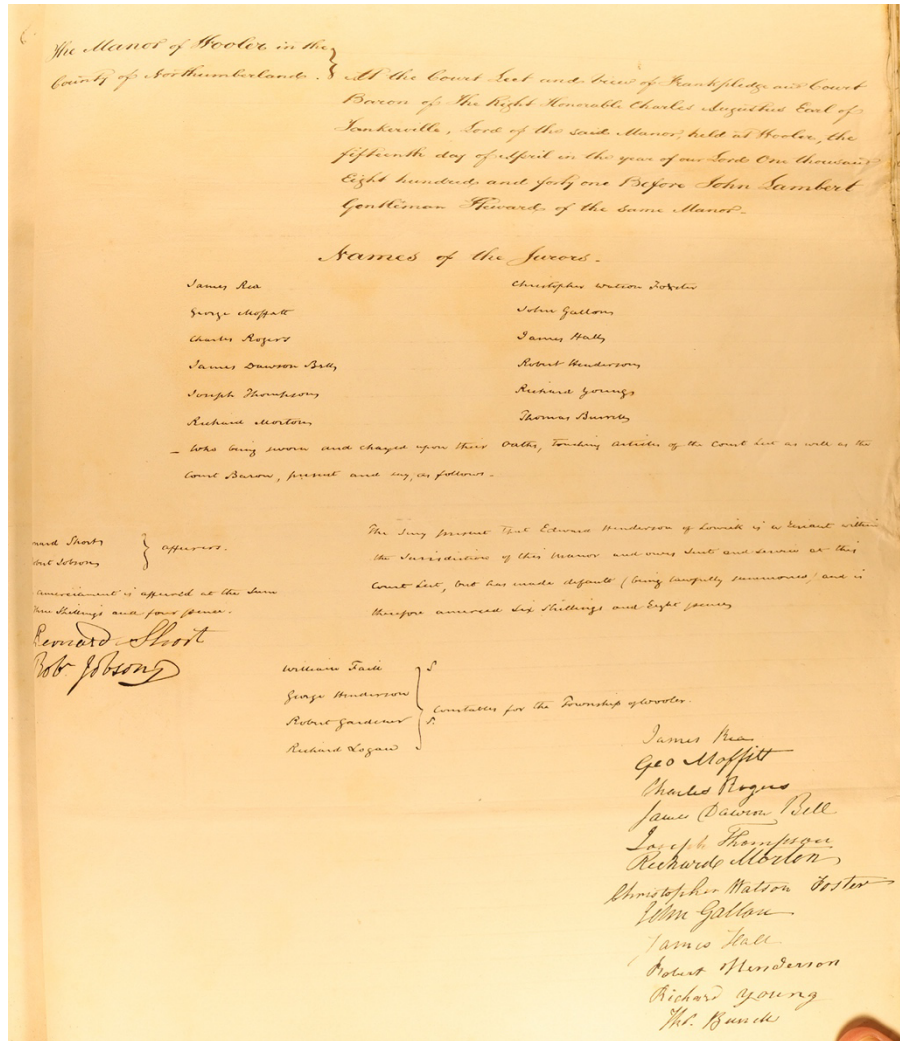 The Manor of Wooler in the
County of Northumberland.
At the Court Leet and view of Frankpledge and Court
Baron of The Right Honorable Charles Augustus Earl of
Tankerville, Lord of the said Manor, held at Wooler, the
fifteenth day of April in the year of our Lord One thousand
Eight hundred and forty one Before John Lambert
Gentleman Steward of the same Manor.
Names of the Jurors.
James Rea
George Moffatt
Charles Rogers
James Dawson Bell
Joseph Thompson
Richard Morton
Christopher Watson Foster
John Gallon
James Hall
Robert Henderson
Richard Young
Thomas Burrell
– Who being sworn and charged upon their Oaths, touching Articles of the Court Leet as well as the
Court Baron, present and say, as follows.
The Jury present That Edward Henderson of Lowick is a Tenant within
the Jurisdiction of this Manor and owes Suit and service at this
Court Leet, but has made default (being lawfully summoned) and is
therefore amerced Six Shillings and Eight pence
nard Short
bert Jobson
affeerors.
amerciament is affeered at the Sum
Three Shillings and four pence.
Leonard Short
Robt Jobson
William Faill
George Henderson
Robert Gardener
Richard Logan
S.
S.
Constables for the Township of Wooler.
James Rea
Geo Moffitt
Charles Rogers
James Dawson Bell
Joseph Thompson
Richard Morton
Christopher Watson Foster
John Gallon
James Hall
Robert Henderson
Richard Young
Thos. Burrell